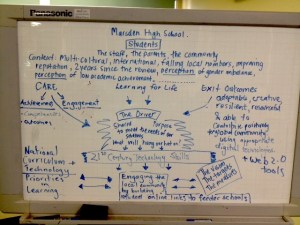 Panasonic
Marsden High School.
Students
The staff, the parents, the community
Context: Multi-cultural, international, falling local numbers, improving
reputation, 2 years since the review, perception of gender imbalance,
perception of low academic achievement
CARE
Learning for Life
Exit Outcomes
Achievement Engagement
adaptable, creative,
resilient, resourceful
outcomes
The Driver
Shared Purpose
to meet the needs of our
that will bring
& able to
contribute positively
community
using appropriate
digital technologies
21st Century Technology Skills
+ web 2.0
tools
National
Curriculum +
Technology
Priorities
in
Learning
Engaging the
local community
by building
student online links to feeder schools
The values
The targets
The measures